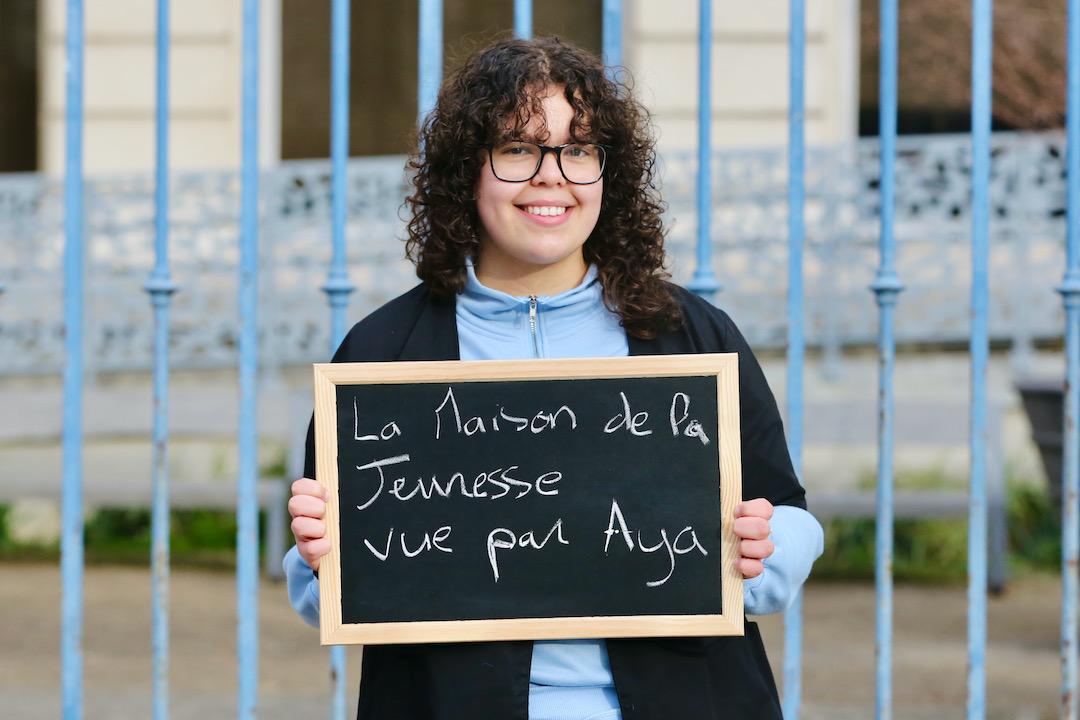 La Maison de la
Jeunesse
vue par Aya